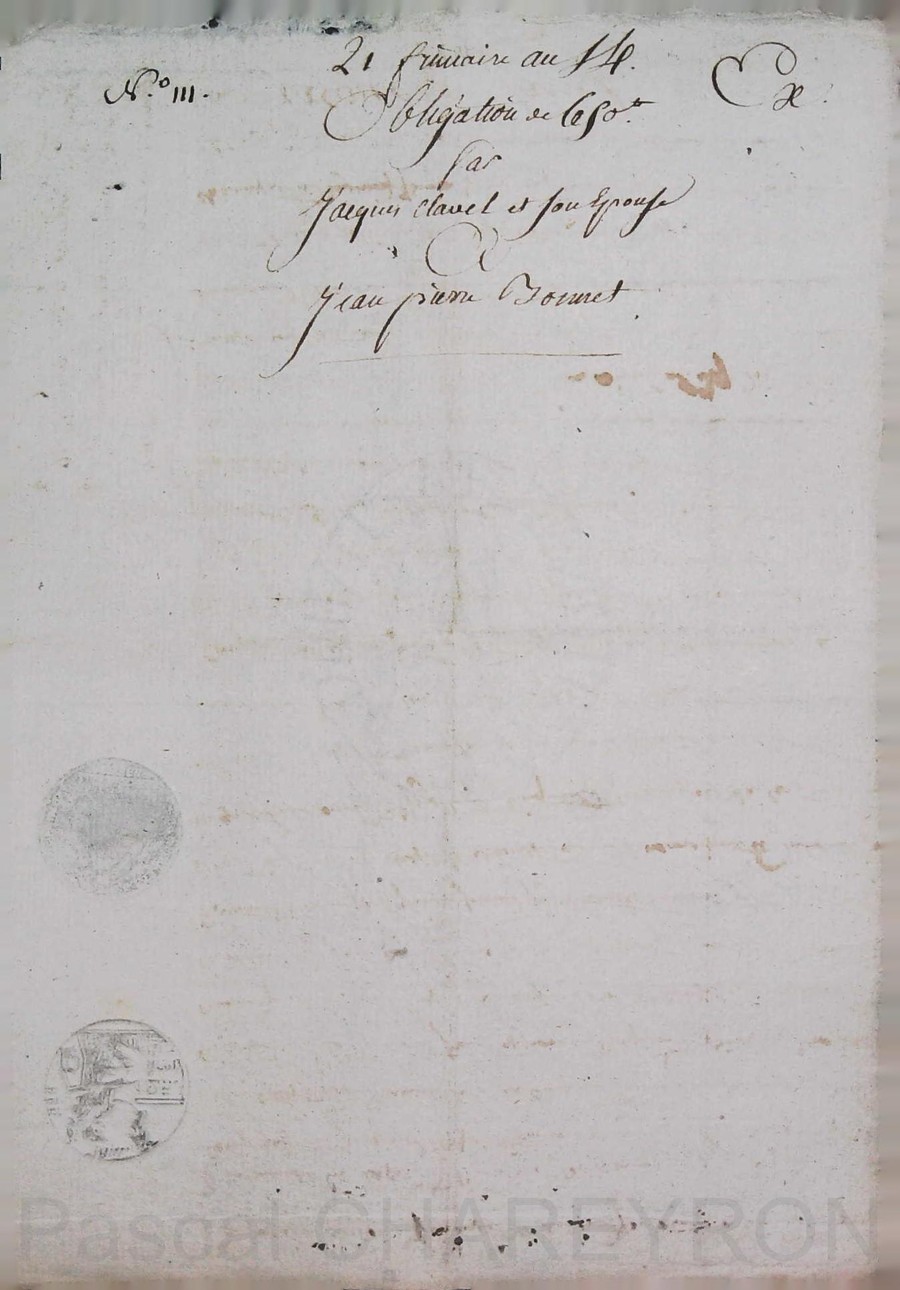 21 frimaire an 14.
N.° 111.
Obligation de 650.tt
Par
Jacques Clavel et son Epouse
A
Jean pierre Bonnet
Pascal CHAREYRON